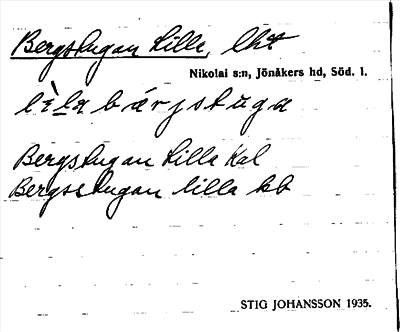 Bergstugan Lilla, lht
Nikolai s:n, Jönåkers hd, Söd. l.
lìla bárjstuga
Bergstugan Lilla Kal
Bergsstugan lilla kb
STIG JOHANSSON 1935.